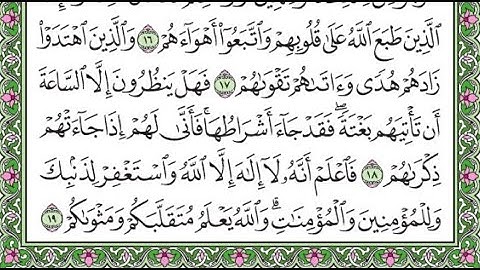 ٱلَّذِينَ طَبَعَ ٱللَّهُ عَلَىٰ قُلُوبِهِمْ وَٱتَّبَعُوٓا۟ أَهْوَآءَهُمْ ١٦ وَٱلَّذِينَ ٱهْتَدَوْا۟
زَادَهُمْ هُدًى وَءَاتَىٰهُمْ تَقْوَىٰهُمْ ١٧ فَهَلْ يَنظُرُونَ إِلَّا ٱلسَّاعَةَ
أَن تَأْتِيَهُم بَغْتَةً ۖ فَقَدْ جَآءَ أَشْرَاطُهَا ۚ فَأَنَّىٰ لَهُمْ إِذَا جَآءَتْهُمْ
ذِكْرَىٰهُمْ ١٨ فَٱعْلَمْ أَنَّهُۥ لَآ إِلَٰهَ إِلَّا ٱللَّهُ وَٱسْتَغْفِرْ لِذَنۢبِكَ
وَلِلْمُؤْمِنِينَ وَٱلْمُؤْمِنَٰتِ ۗ وَٱللَّهُ يَعْلَمُ مُتَقَلَّبَكُمْ وَمَثْوَىٰكُمْ ١٩